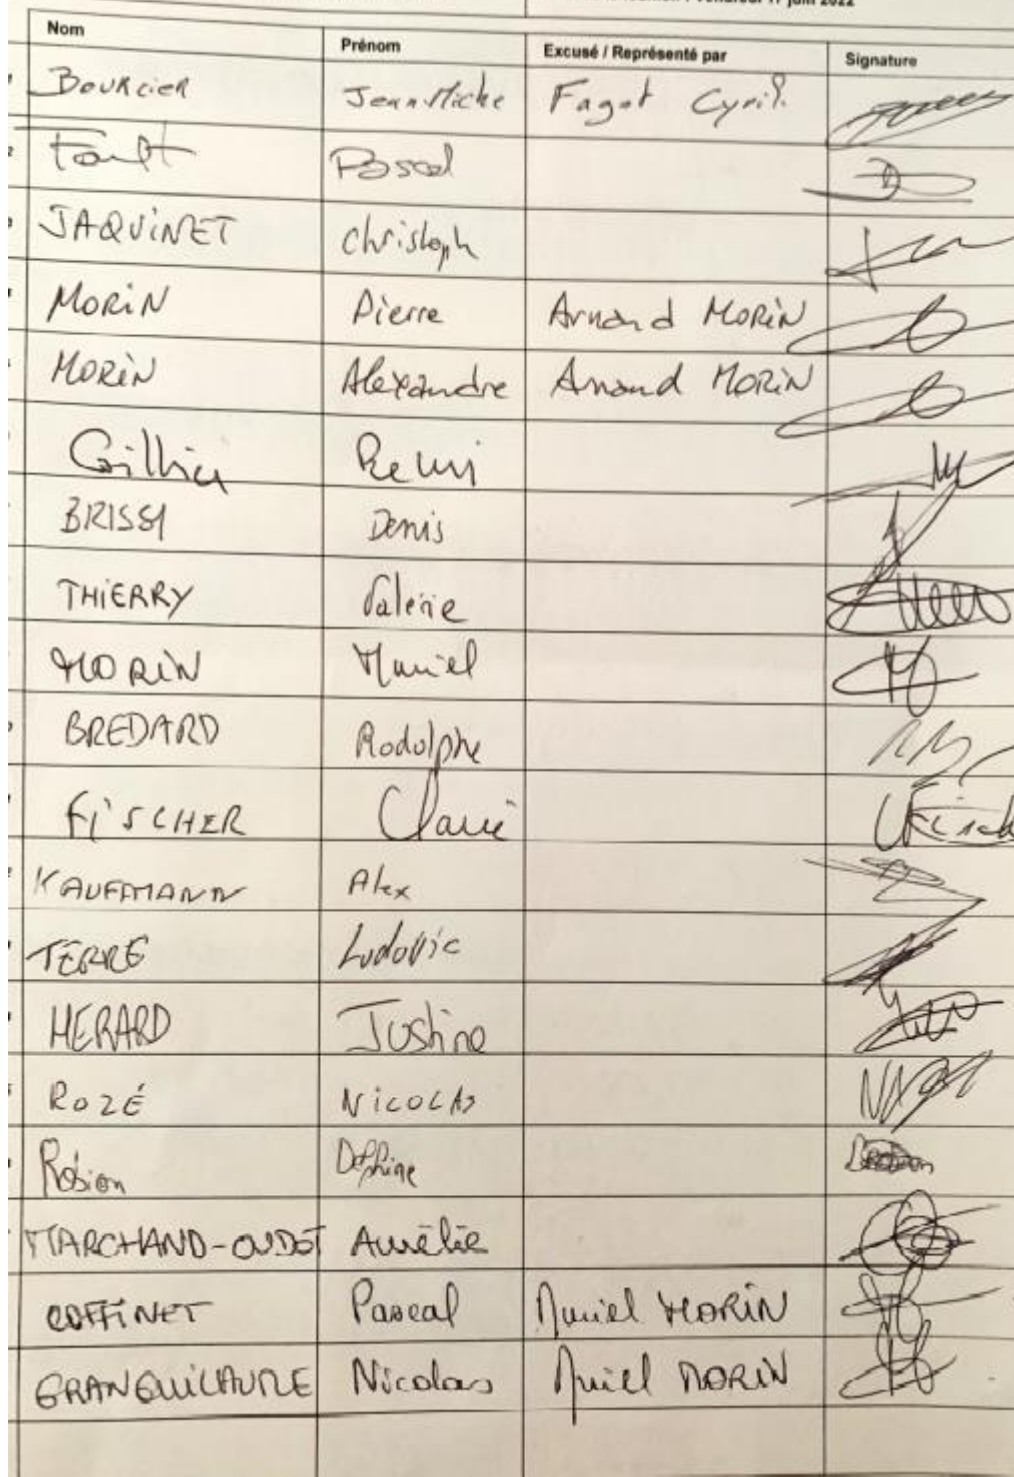 vendredi 17 juin 2022
Nom Prénom Excusé / Représenté par Signature
Bourcier Jean Miche Fagot Cyril.
Pascal
JAQUINET Christoph
MORIN Pierre Arnaud MORIN
MORIN Alexandre Arnaud MORIN
Remi
BRISSI Denis
THIERRY Valérie
MORIN Muriel
BREDARD Rodolphe
FISCHER Claire
KAUFFMANN Alex
TERRE Ludovic
HERARD Justine
ROZÉ NICOLAS
Robion Delphine
MARCHAND-OUDOT Aurélie
COFFINET Pascal Muriel MORIN
GRANGUILLAUME Nicolas Muriel MORIN